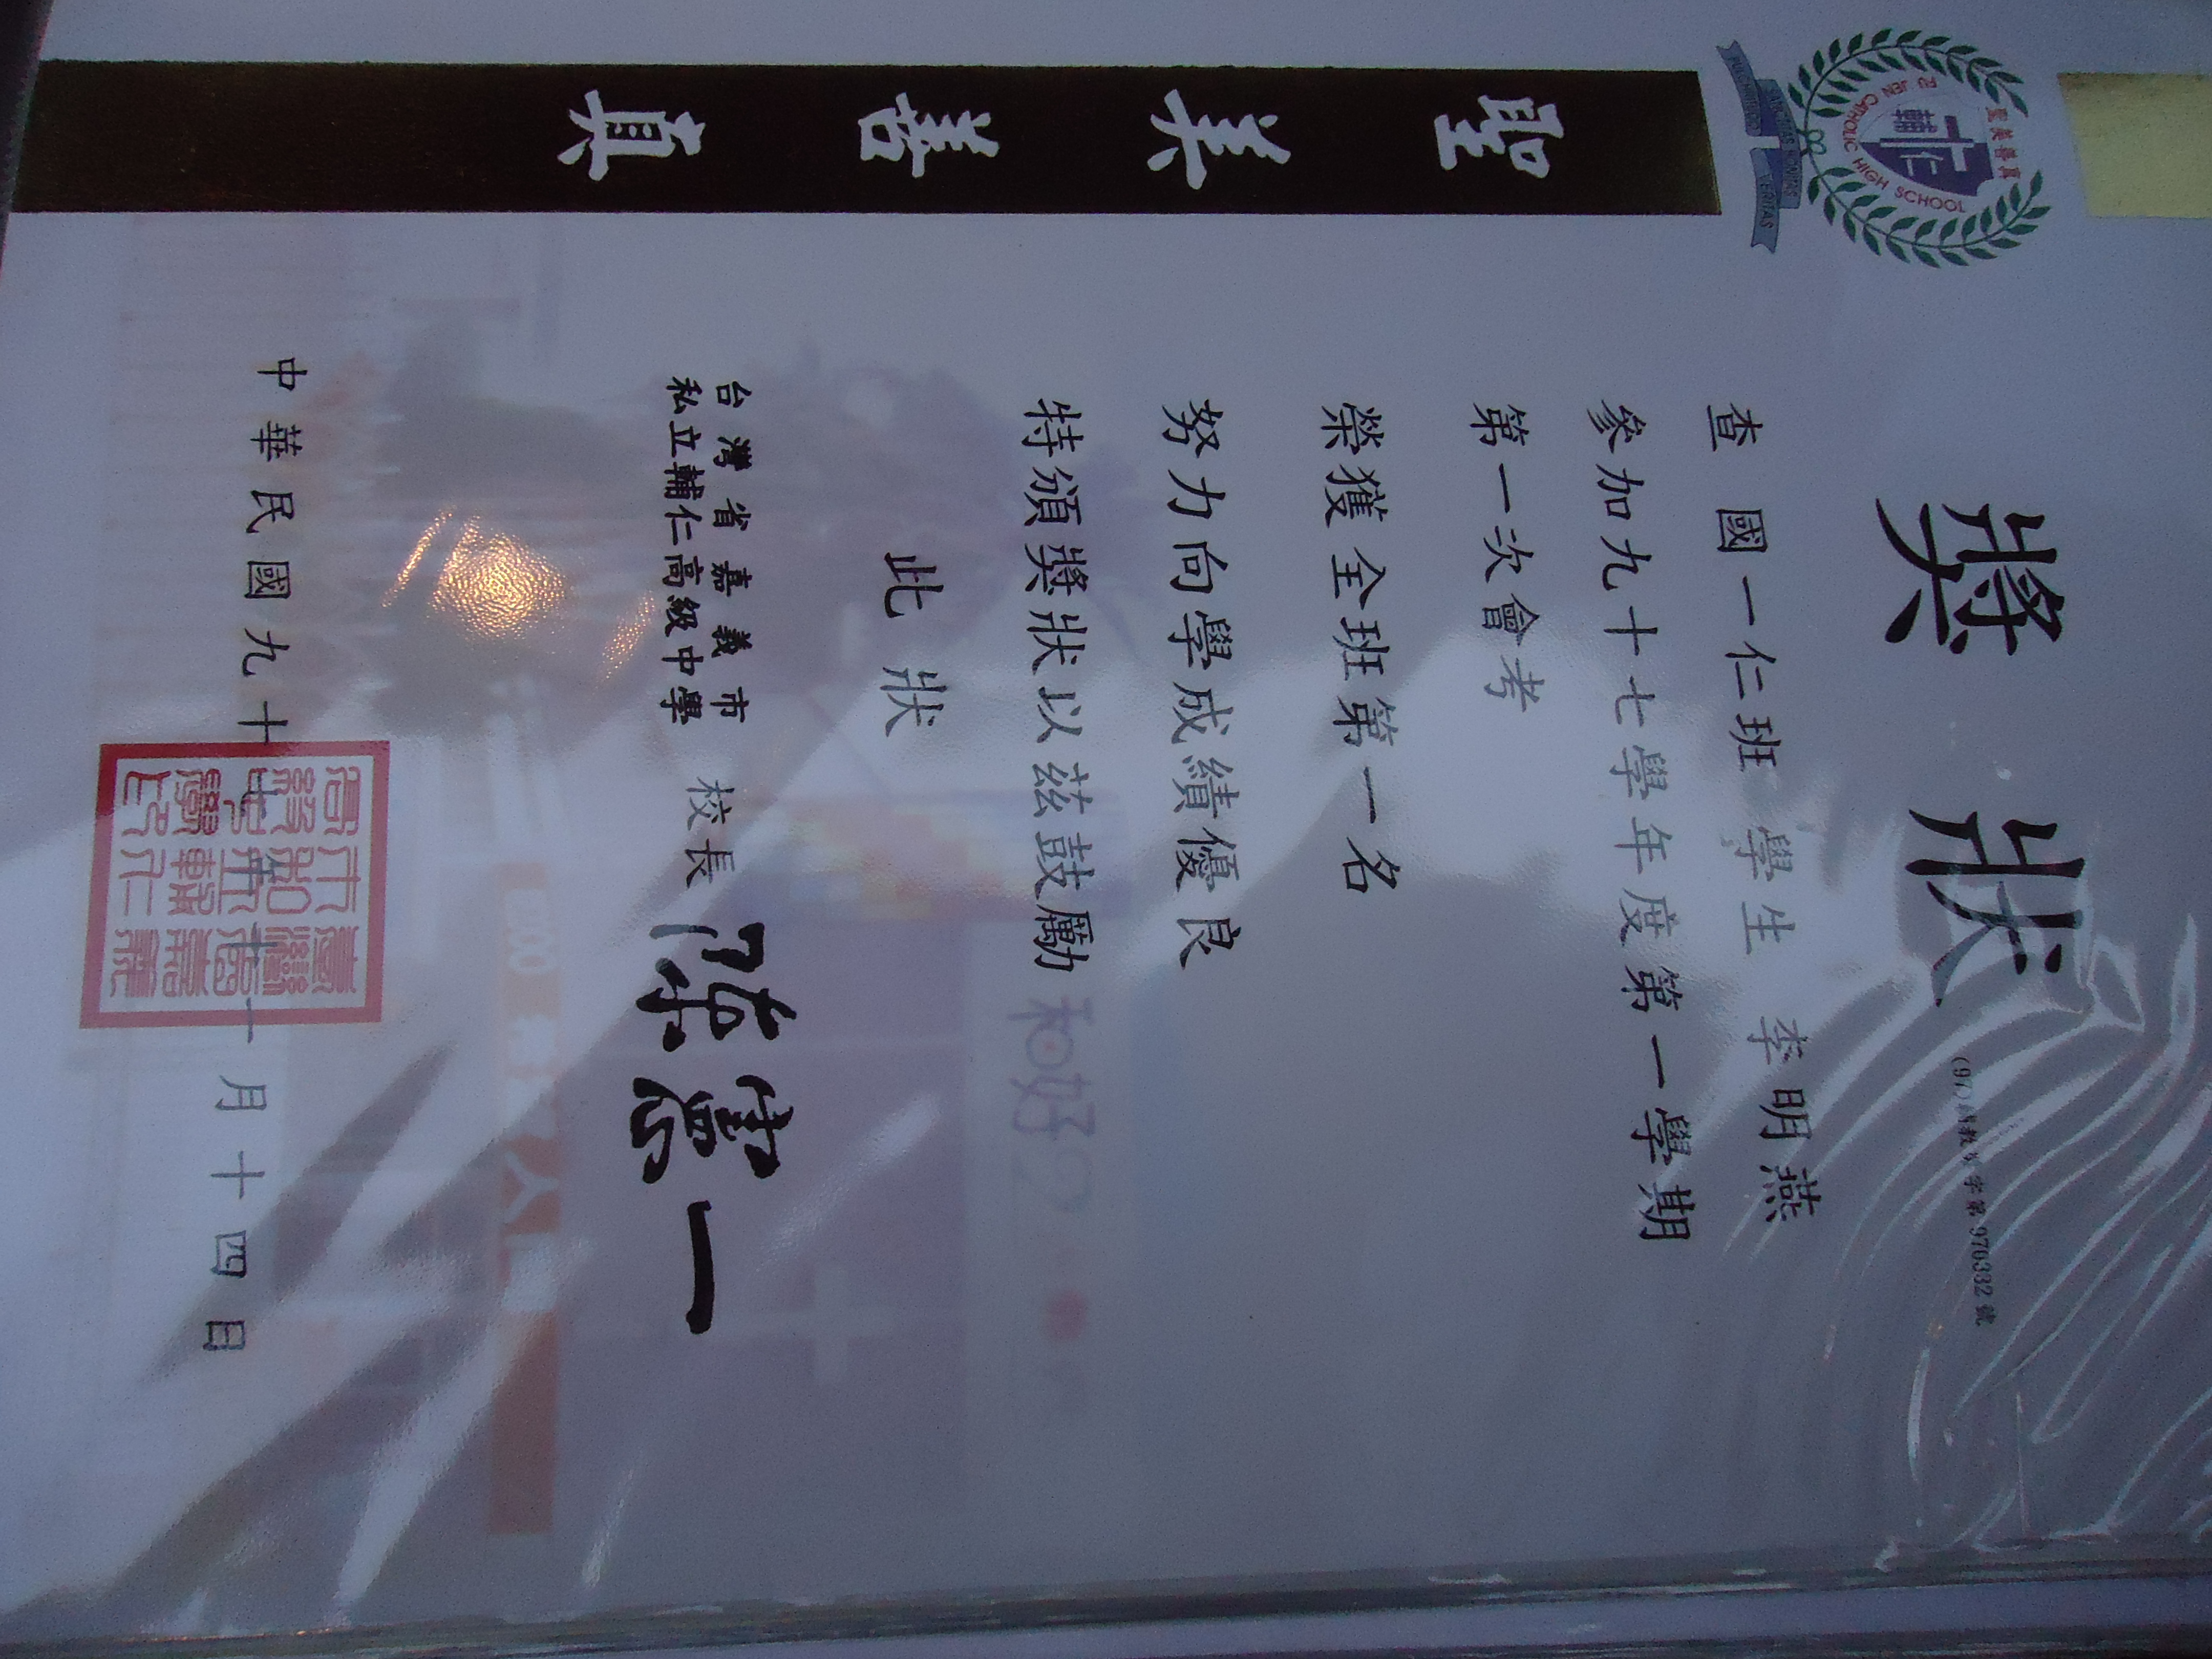 聖美善真
聖美善真
FU JEN CATHOLIC HIGH SCHOOL
輔仁
VERITAS
獎狀
字第970332號
查 國一仁班 學生 李明燕
參加九十七學年度第一學期
第一次會考
榮獲全班第一名
努力向學成績優良
特頒獎狀以茲鼓勵
此狀
台灣省嘉義市
私立輔仁高級中學
校長 陳憲一
中華民國九十七年十一月十四日